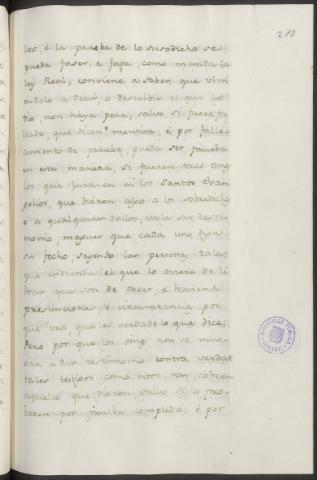 211
les, é la prueba de lo susodicho se
pueda faser, é faga, como manda la
ley Real, conviene a saber, que vini
endolo a decir, o describir el que lo
dió, non haya pena, salvo si fuere fa
llado que dicen mentira, é por falle
cimiento de prueba, pueda ser prueba
en esta manera, si fueren tres ome
los que juraren en los Santos Evan
gelios, que dieron algo a los sobredicho
o a qualquier dellos, vala su testi
monio, maguer que cada uno diga
su fecho, seyendo las personas tales
que entienda el que lo oviere de li
brar que son de creer, é haviendo
presunciones, é circunstancias por
que vea que es verdade lo que dice;
Pero por que los omes non se mue
van a dar testimonio contra verdat
tales testigos como estos non cobren
aquello que dieron, salvo si lo pro
baren por prueba complida; é por
BIBLIOTECA PUBLICA